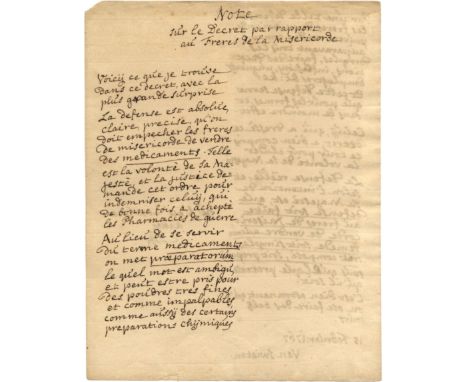 Note
sur le Decret par rapport
au Freres de la Misericorde
Voicij ce que je trouve
dans ce decret, avec la
plus grande surprise
La defense est absolüe,
claire, precise, qu'on
doit empecher les freres
de misericorde de vendre
des medicaments. Telle
est la volonté de sa Ma-
jesté, et la justice de-
mande cet ordre pour
indemniser celuy, qui
de bonne fois a achepté
les Pharmacies de guerre
Au lieu de se servir
du terme medicaments
on met præparatorum
le quel mot est ambigu,
et peut estre pris pour
des poudres tres fines
et comme impalpables
comme aussy des certains
preparations chymiques